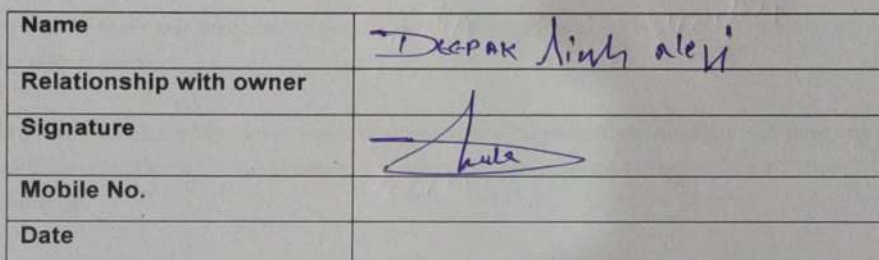 Name DEEPAK Sinh
Relationship with owner
Signature
Mobile No.
Date